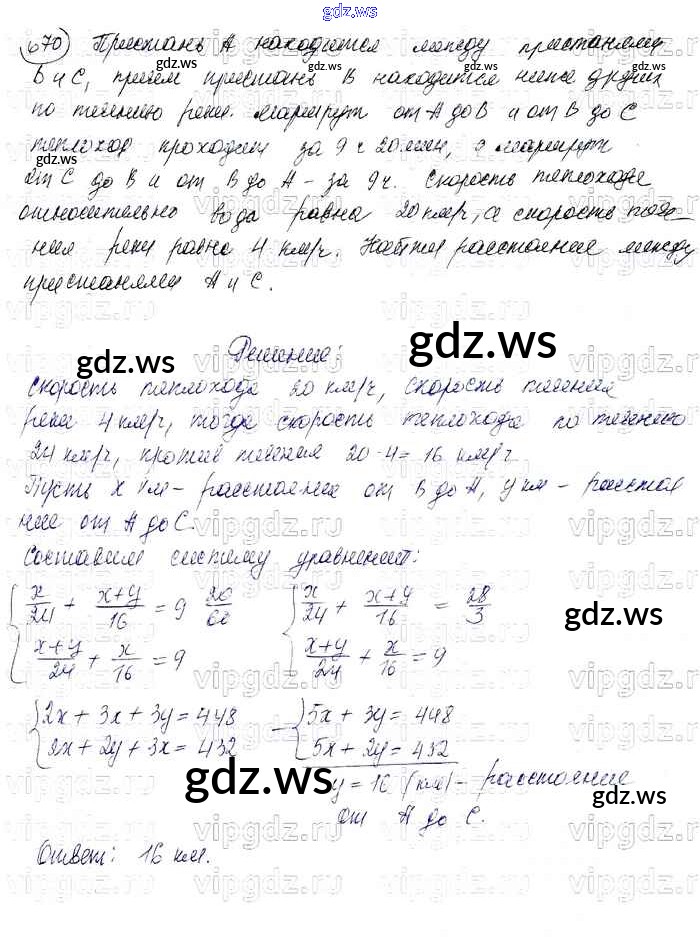 gdz.ws
670) Пристань А находится между пристанями
В и С, причем пристань В находится ниже других
по течению реки. Маршрут от А до В и от В до С
теплоход проходит за 9 ч 20 мин, а маршрут
от С до В и от В до А – за 9ч. Скорость теплохода
относительно вода равна 20 км/ч, а скорость тече-
ния реки равна 4 км/ч. Найти расстояние между
пристанями А и С.
Решение:
Скорость теплохода 20 км/ч, скорость течения
реки 4 км/ч, тогда скорость теплохода по течению
24 км/ч, против течения 20-4= 16 км/ч
Пусть х км – расстояние от В до А, у км – расстоя
ние от А до С.
Составим систему уравнений:
x/24 + (x+y)/16 = 9 20/60   x/24 + (x+y)/16 = 28/3
(x+y)/24 + x/16 = 9   (x+y)/24 + x/16 = 9
2x + 3x + 3y = 448   5x + 3y = 448
2x + 2y + 3x = 432   5x + 2y = 432
y = 16 (км) – расстояние
от А до С.
Ответ: 16 км.
gdz.ws